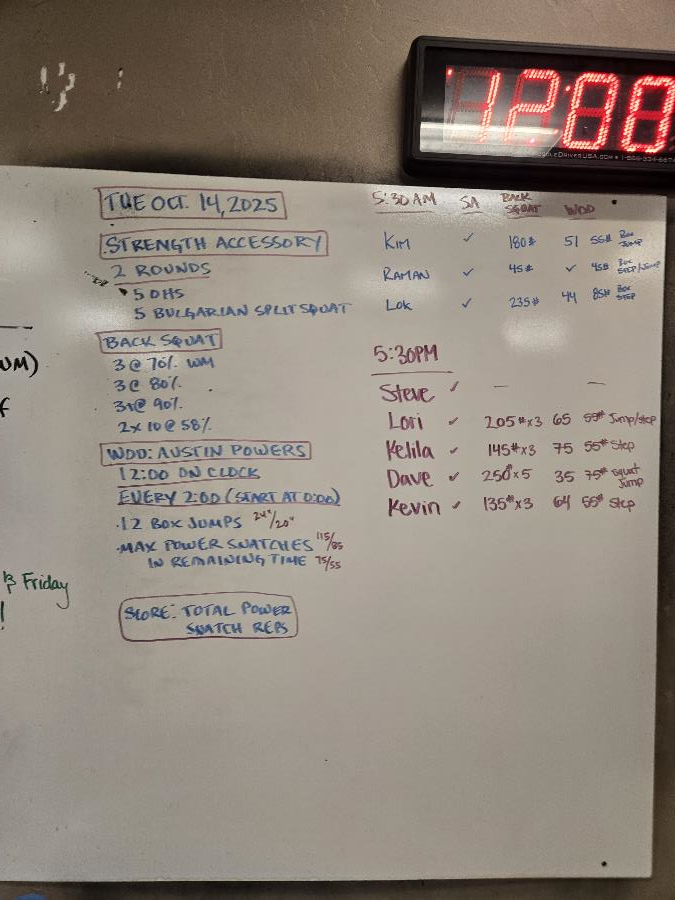 12:00
TUE OCT. 14, 2025
STRENGTH ACCESSORY
2 ROUNDS
5 OHS
5 BULGARIAN SPLIT SQUAT
BACK SQUAT
3 @ 70% WM
3 @ 80%
3+@ 90%
2x10 @ 58%
WOD: AUSTIN POWERS
12:00 ON CLOCK
EVERY 2:00 (START AT 0:00)
·12 BOX JUMPS 24"/20"
·MAX POWER SNATCHES 115/85
IN REMAINING TIME 75/55
SCORE: TOTAL POWER
SNATCH REPS
5:30AM SA BACK SQUAT WOD
KIM ✓ 180# 51 55# BOX JUMP
RAMAN ✓ 45# ✓ 45# BOX STEP/JUMP
LOK ✓ 235# 44 85# BOX STEP
5:30PM
Steve ✓ — —
Lori ✓ 205#x3 65 55# Jump/step
Kelila ✓ 145#x3 75 55# Step
Dave ✓ 250#x5 35 75# squat Jump
Kevin ✓ 135#x3 64 55# Step
WM)
f
Friday
!